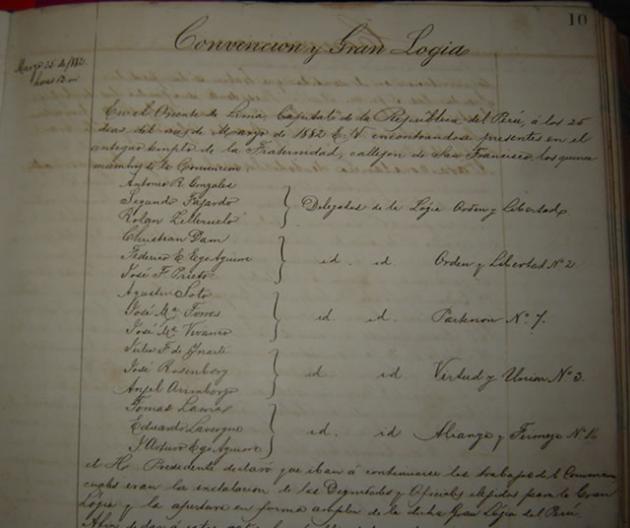 10
Convencion y Gran Logia
Marzo 25 de 1882
horas 12 m
En el Oriente de Lima, Capital de la República del Perú, á los 25
dias del mes de Marzo de 1882 E. V. encontrandose presentes en el
antiguo templo de la Fraternidad, callejon de San Francisco, los quince
miembros de la Convencion
Antonio R. Gonzales
Segundo Fajardo
Delegados de la Logia Orden y Libertad
Christian Dam
Federico E. Ego Aguirre id. id. Orden y Libertad Nº 2
José F. Prieto
Agustin Soto
José Mª Torres id. id. Partenon Nº 7.
José Mª Vivanco
Julio F. de Yriarte
José Rosenberg id id Virtud y Union Nº 3.
Anjel
Tomas Lamas
Eduardo Lavergne id. id Alianza y Firmeza Nº
J. Arturo Ego Aguirre
el H. Presidente declaró que iban á continuarse los trabajos de la Convencion
cuales eran la instalacion de los Dignatarios y Oficiales elejidos para la Gran
Logia y la apertura en forma amplia de la dicha Gran Logia del Perú.